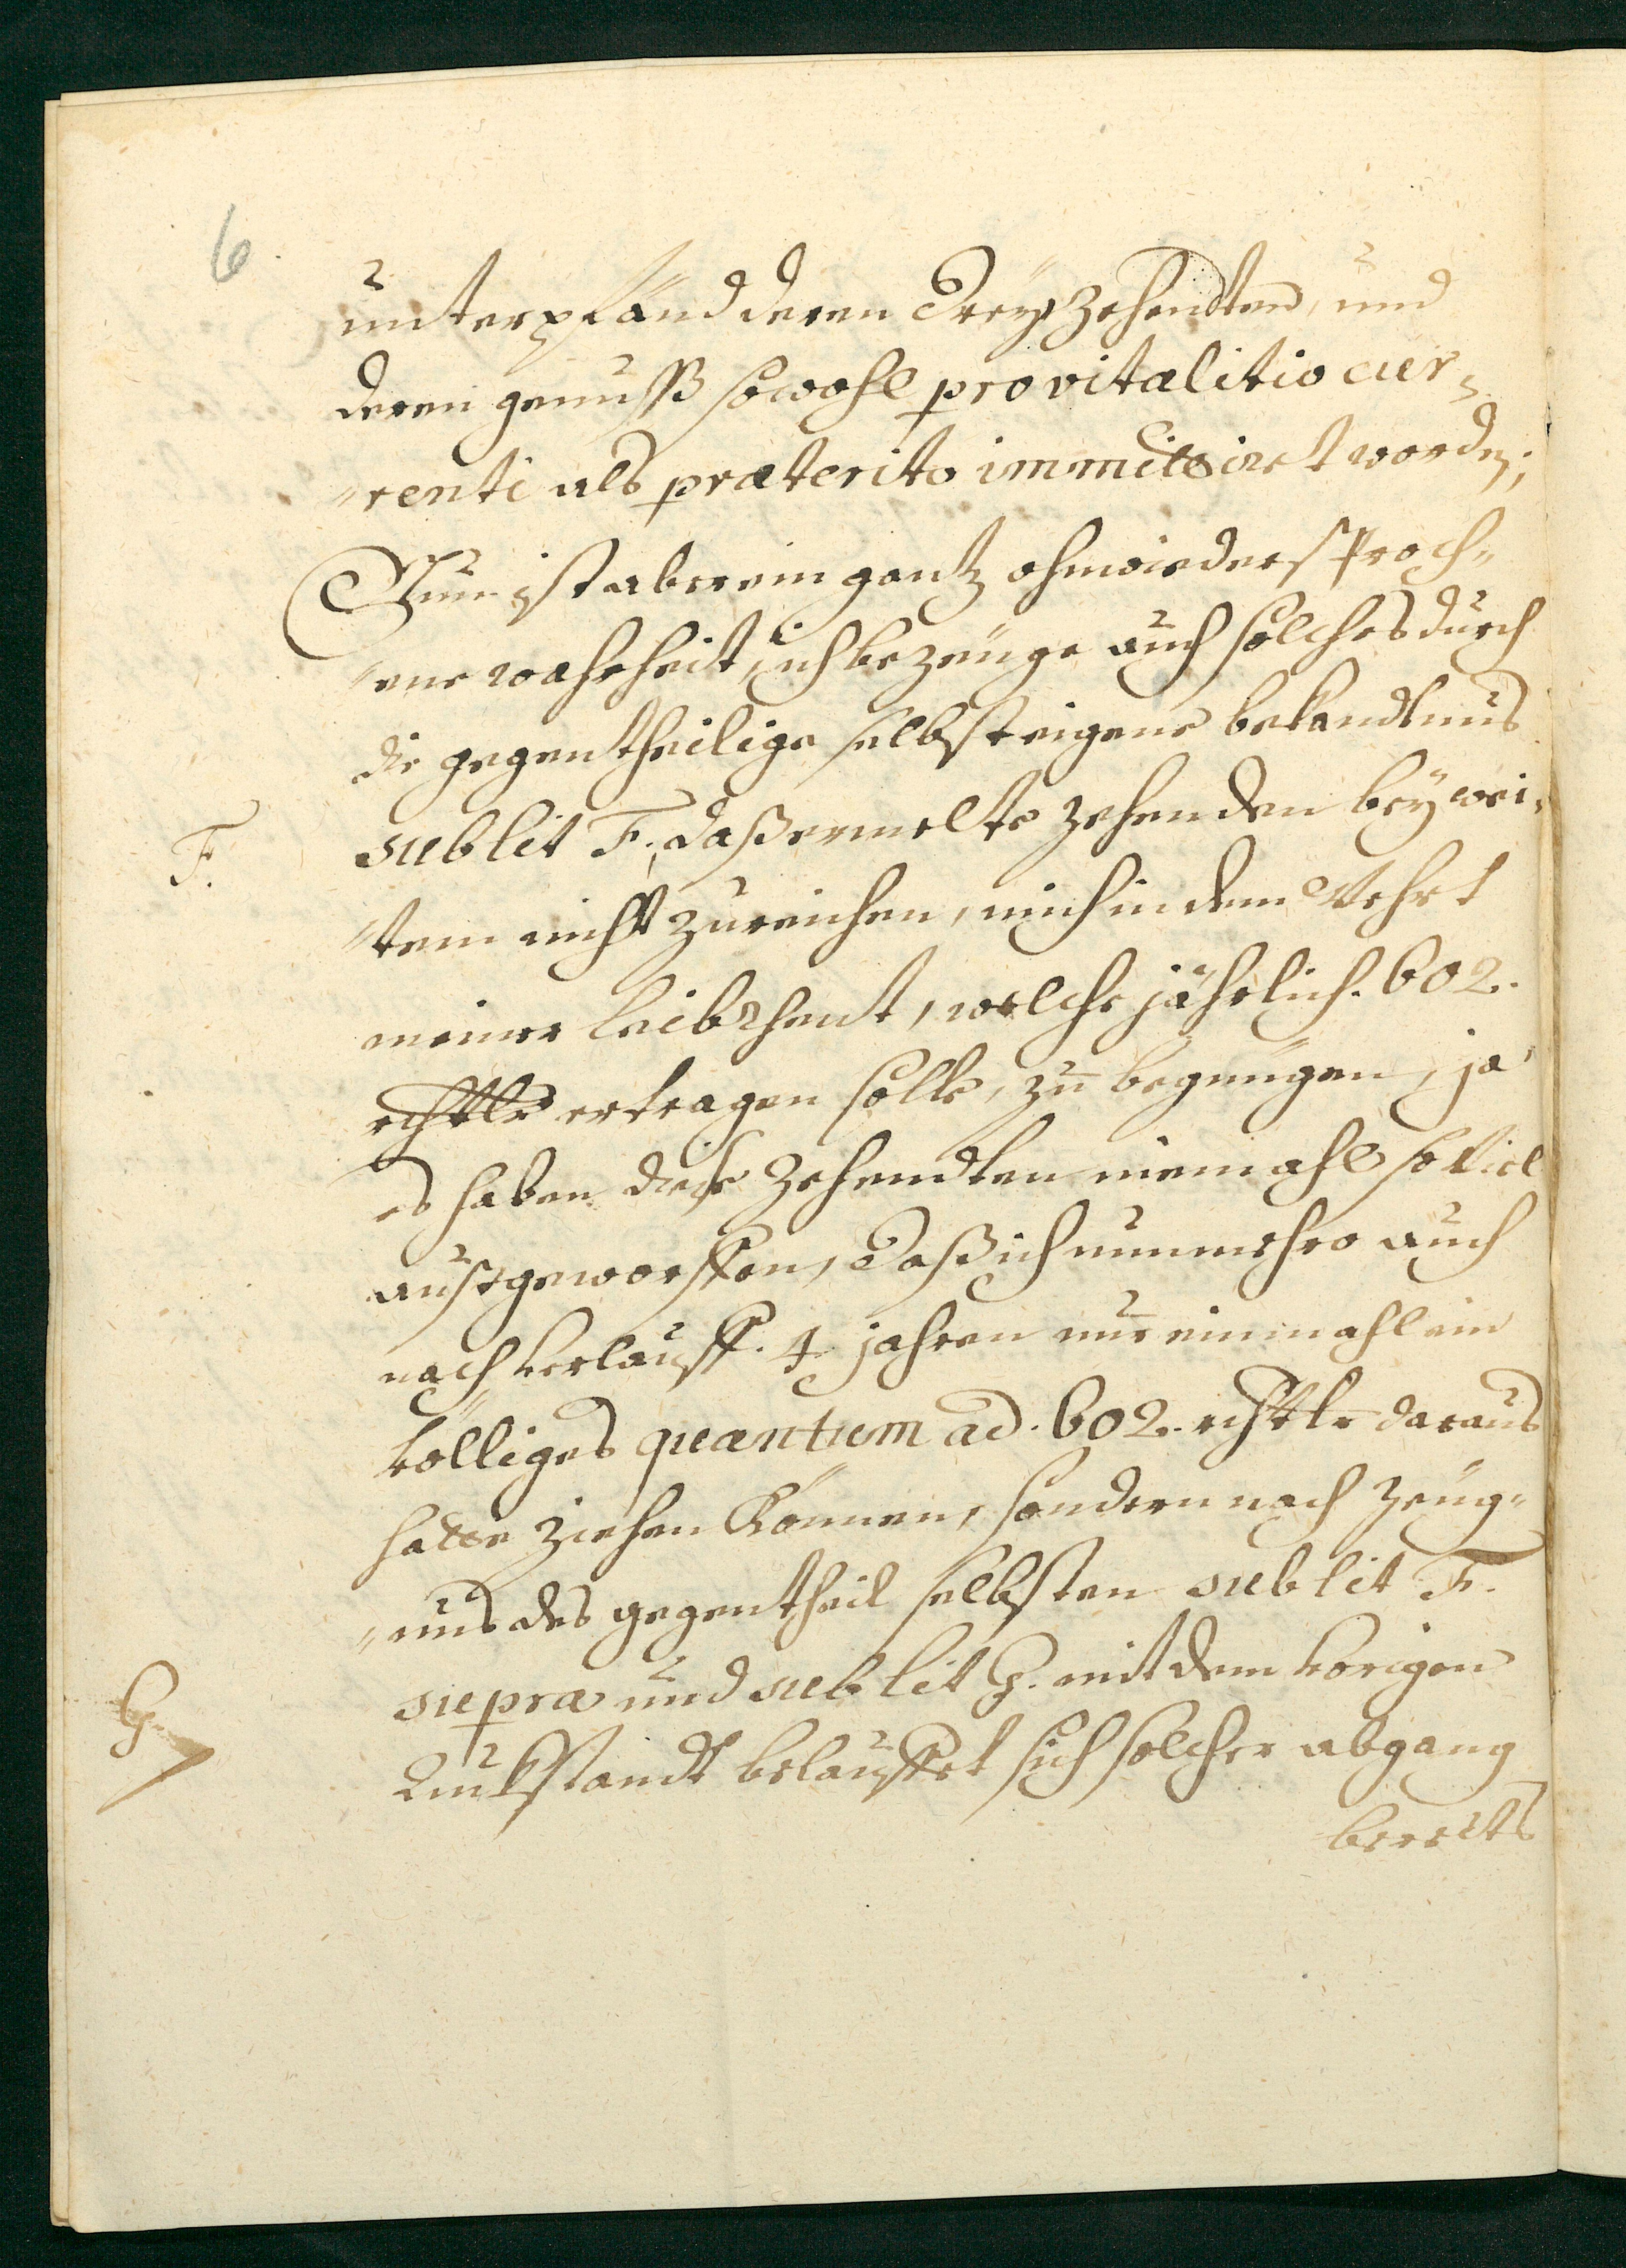 6
unterpfand deren dreyß zehendten, und
deren genuß sowohl pro vitalitio cur-
renti als præterito immittiret worden;
Nun ist aber ein gantz ohnwiedersproch-
ene wahrheit, ich bezeuge auch solches durch
die gegentheilige selbst eigene bekandtnus
F.
sub lit F., daß ermelte zehenden bey wei-
tem nicht zureichen, mich in dem Wehrt
meiner leibrhent, welche jährlich. 602.
rhtlr ertragen solle, zu begnügen, ja
es haben diese zehendten niemahl so viel
außgeworffen, daß ich nunmehro auch
nach verlauff. 4 jahren nur einmahl ein
völliges quantum ad. 602. rhtlr daraus
hatte ziehen können, sondern nach zeüg-
nus des gegentheil selbsten sub lit F.
G.
supra und sub lit G. mit dem vorigen
Rückstandt belauffet sich solcher abgang
bereits